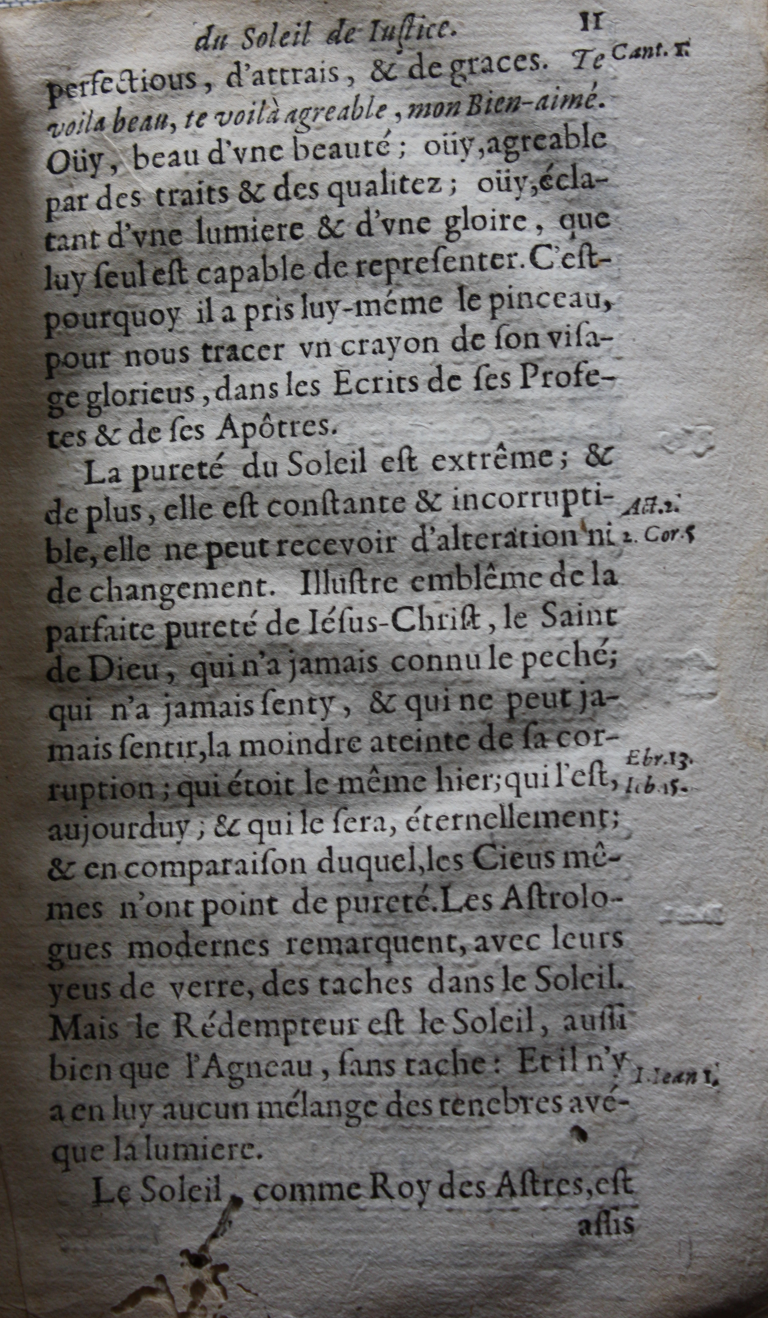 du Soleil de Iuſtice. 11
perfectious, d'attrais, & de graces. Te Cant. 1.
voila beau, te voilà agreable, mon Bien-aimé.
Oüy, beau d'vne beauté; oüy,agreable
par des traits & des qualitez; oüy,écla-
tant d'vne lumiere & d'vne gloire, que
luy ſeul eſt capable de repreſenter. C'eſt-
pourquoy il a pris luy-méme le pinceau,
pour nous tracer vn crayon de ſon viſa-
ge glorieus, dans les Ecrits de ſes Profe-
tes & de ſes Apôtres.
La pureté du Soleil eſt extrême; &
de plus, elle eſt conſtante & incorrupti- Act.2.
ble, elle ne peut recevoir d'alteration ni 2. Cor.5
de changement. Illuſtre emblême de la
parfaite pureté de Iéſus-Chriſt, le Saint
de Dieu, qui n'a jamais connu le peché;
qui n'a jamais ſenty, & qui ne peut ja-
mais ſentir,la moindre ateinte de ſa cor-
ruption; qui étoit le même hier; qui l'eſt, Ebr.13.
aujourduy; & qui le ſera, éternellement; Iob.15.
& en comparaiſon duquel,les Cieus mê-
mes n'ont point de pureté. Les Aſtrolo-
gues modernes remarquent, avec leurs
yeus de verre, des taches dans le Soleil.
Mais le Rédempteur eſt le Soleil, auſſi
bien que l'Agneau, ſans tache: Et il n'y I.Iean 1.
a en luy aucun mélange des tenebres avé-
que la lumiere.
Le Soleil, comme Roy des Aſtres, eſt
aſſis